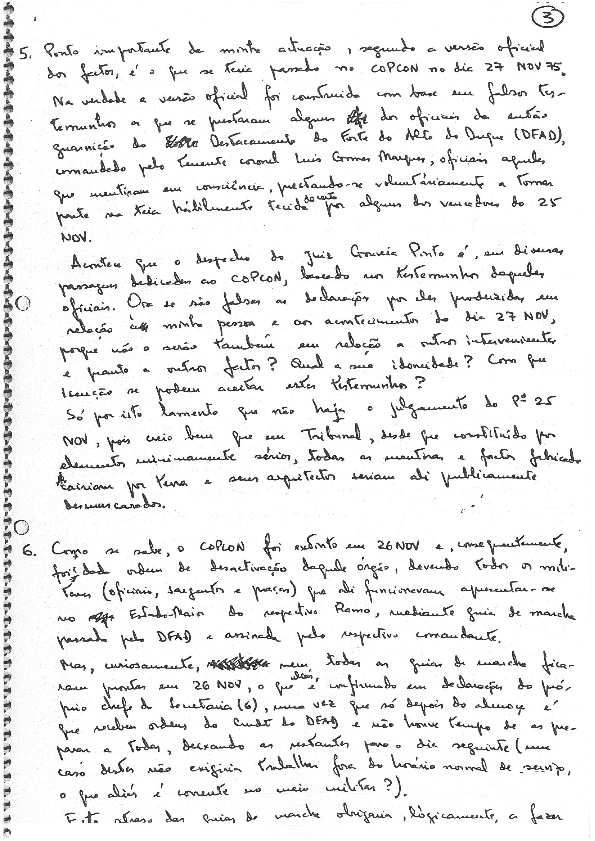 3
5. Ponto importante da minha actuação, segundo a versão oficial
dos factos, é o que se teria passado no COPCON no dia 27 NOV 75.
Na verdade a versão oficial foi construida com base em falsos tes-
temunhos a que se prestaram alguns dos oficiais da então
guarnição do Destacamento do Forte do Alto do Duque (DFAD),
comandado pelo tenente coronel Luis Gomes Marques, oficiais aqueles
que mentiram em consciência, prestando-se voluntáriamente a tomar
parte na teia hábilmente tecida decerto por alguns dos vencedores do 25
NOV.
Acontece que o despacho do Juiz Gouveia Pinto é, em diversas
passagens dedicadas ao COPCON, baseado nos testemunhos daqueles
oficiais. Ora se são falsas as declarações por eles produzidas em
relação à minha pessoa e aos acontecimentos do dia 27 NOV,
porque não o serão também em relação a outros intervenientes
e quanto a outros factos? Qual a sua idoneidade? Com que
isenção se podem aceitar estes testemunhos?
Só por isto lamento que não haja o julgamento do Pº 25
NOV, pois creio bem que em Tribunal, desde que constituído por
elementos minimamente sérios, todas as mentiras e factos fabricados
cairiam por terra e seus arquitectos seriam ali publicamente
desmascarados.
6. Como se sabe, o COPCON foi extinto em 26 NOV e, consequentemente,
foi dada ordem de desactivação daquele órgão, devendo todos os mili-
tares (oficiais, sargentos e praças) que ali funcionavam apresentar-se
no Estado-Maior do respectivo Ramo, mediante guia de marcha
passada pelo DFAD e assinada pelo respectivo comandante.
Mas, curiosamente, nem todas as guias de marcha fica-
ram prontas em 26 NOV, o que aliás é confirmado em declarações do pró-
prio chefe da Secretaria (6), uma vez que só depois do almoço é
que recebeu ordens do Cmdt do DFAD e não houve tempo de as pre-
parar a todas, deixando as restantes para o dia seguinte (um
caso destes não exigiria trabalhar fora do horário normal de serviço,
o que aliás é corrente no meio militar?).
Este atraso das guias de marcha obrigaria, lógicamente, a fazer